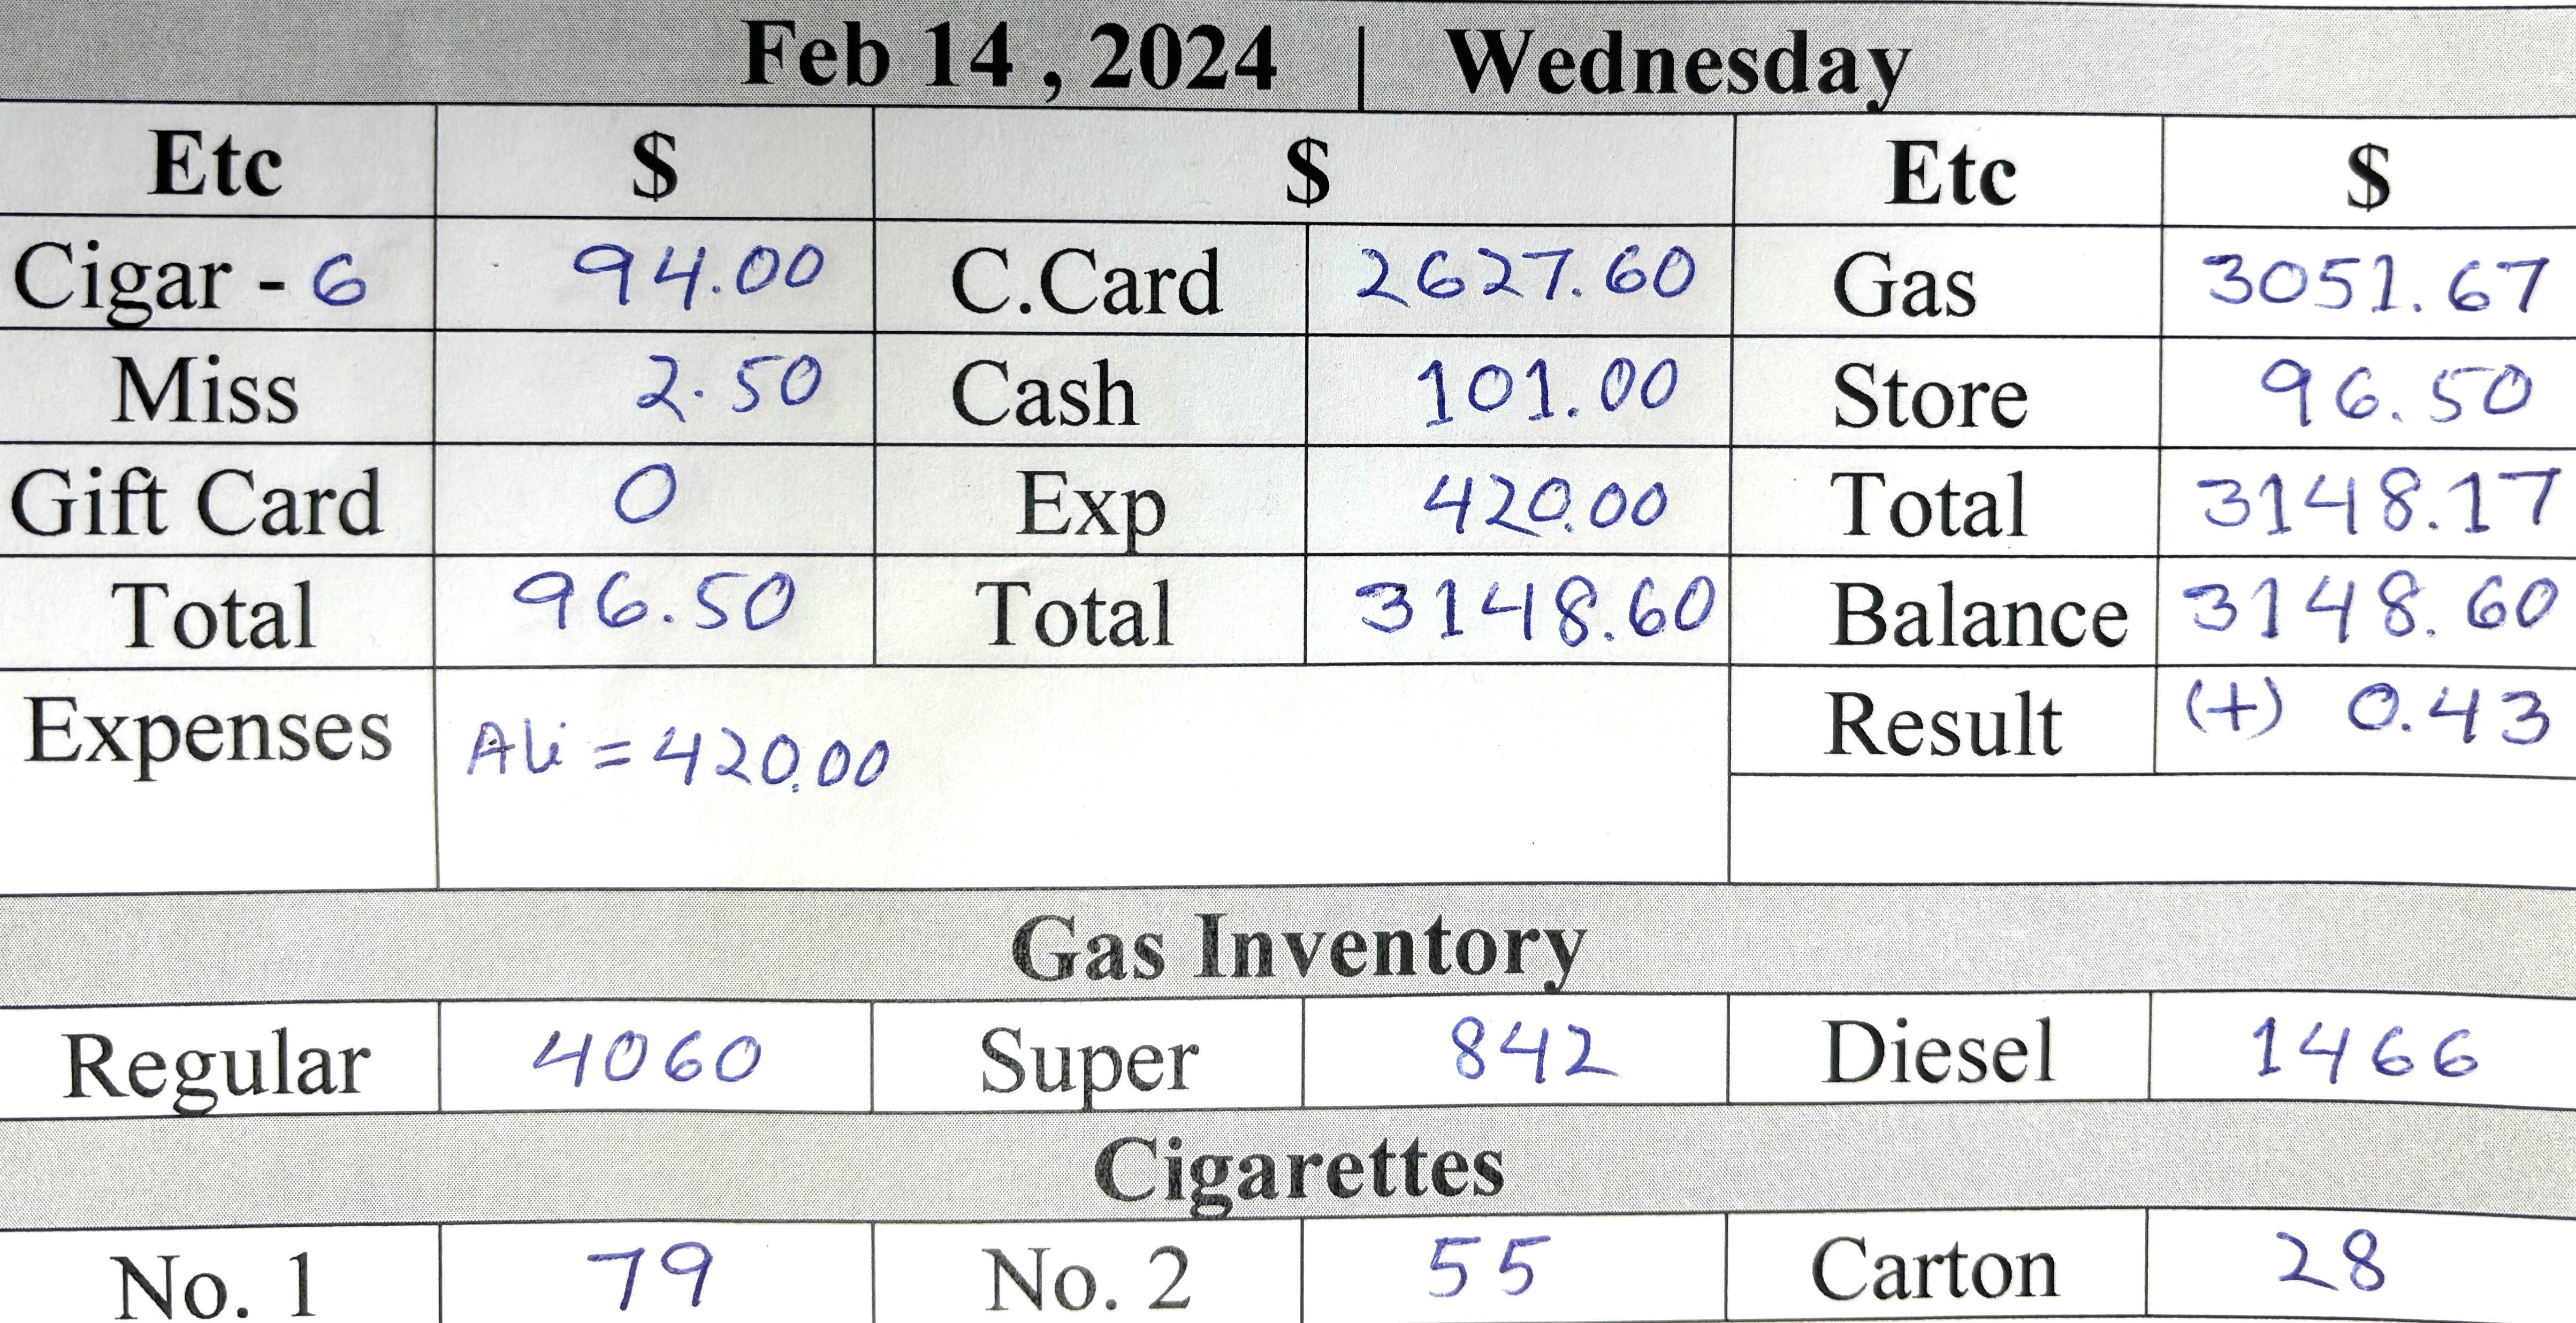 Feb 14 , 2024 | Wednesday
Etc $ $ Etc $
Cigar - 6 94.00 C.Card 2627.60 Gas 3051.67
Miss 2.50 Cash 101.00 Store 96.50
Gift Card 0 Exp 420.00 Total 3148.17
Total 96.50 Total 3148.60 Balance 3148.60
Expenses Ali = 420.00 Result (+) 0.43
Gas Inventory
Regular 4060 Super 842 Diesel 1466
Cigarettes
No. 1 79 No. 2 55 Carton 28